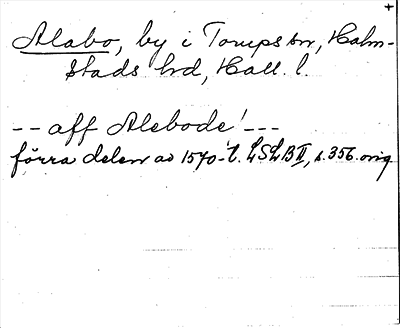 +
Alabo, by i Tönnersjö sn, Halm-
stads hd, Hall. l.
-- aff Alebode! ---
förra delen av 1570-t. LSLB II, s. 356. orig.